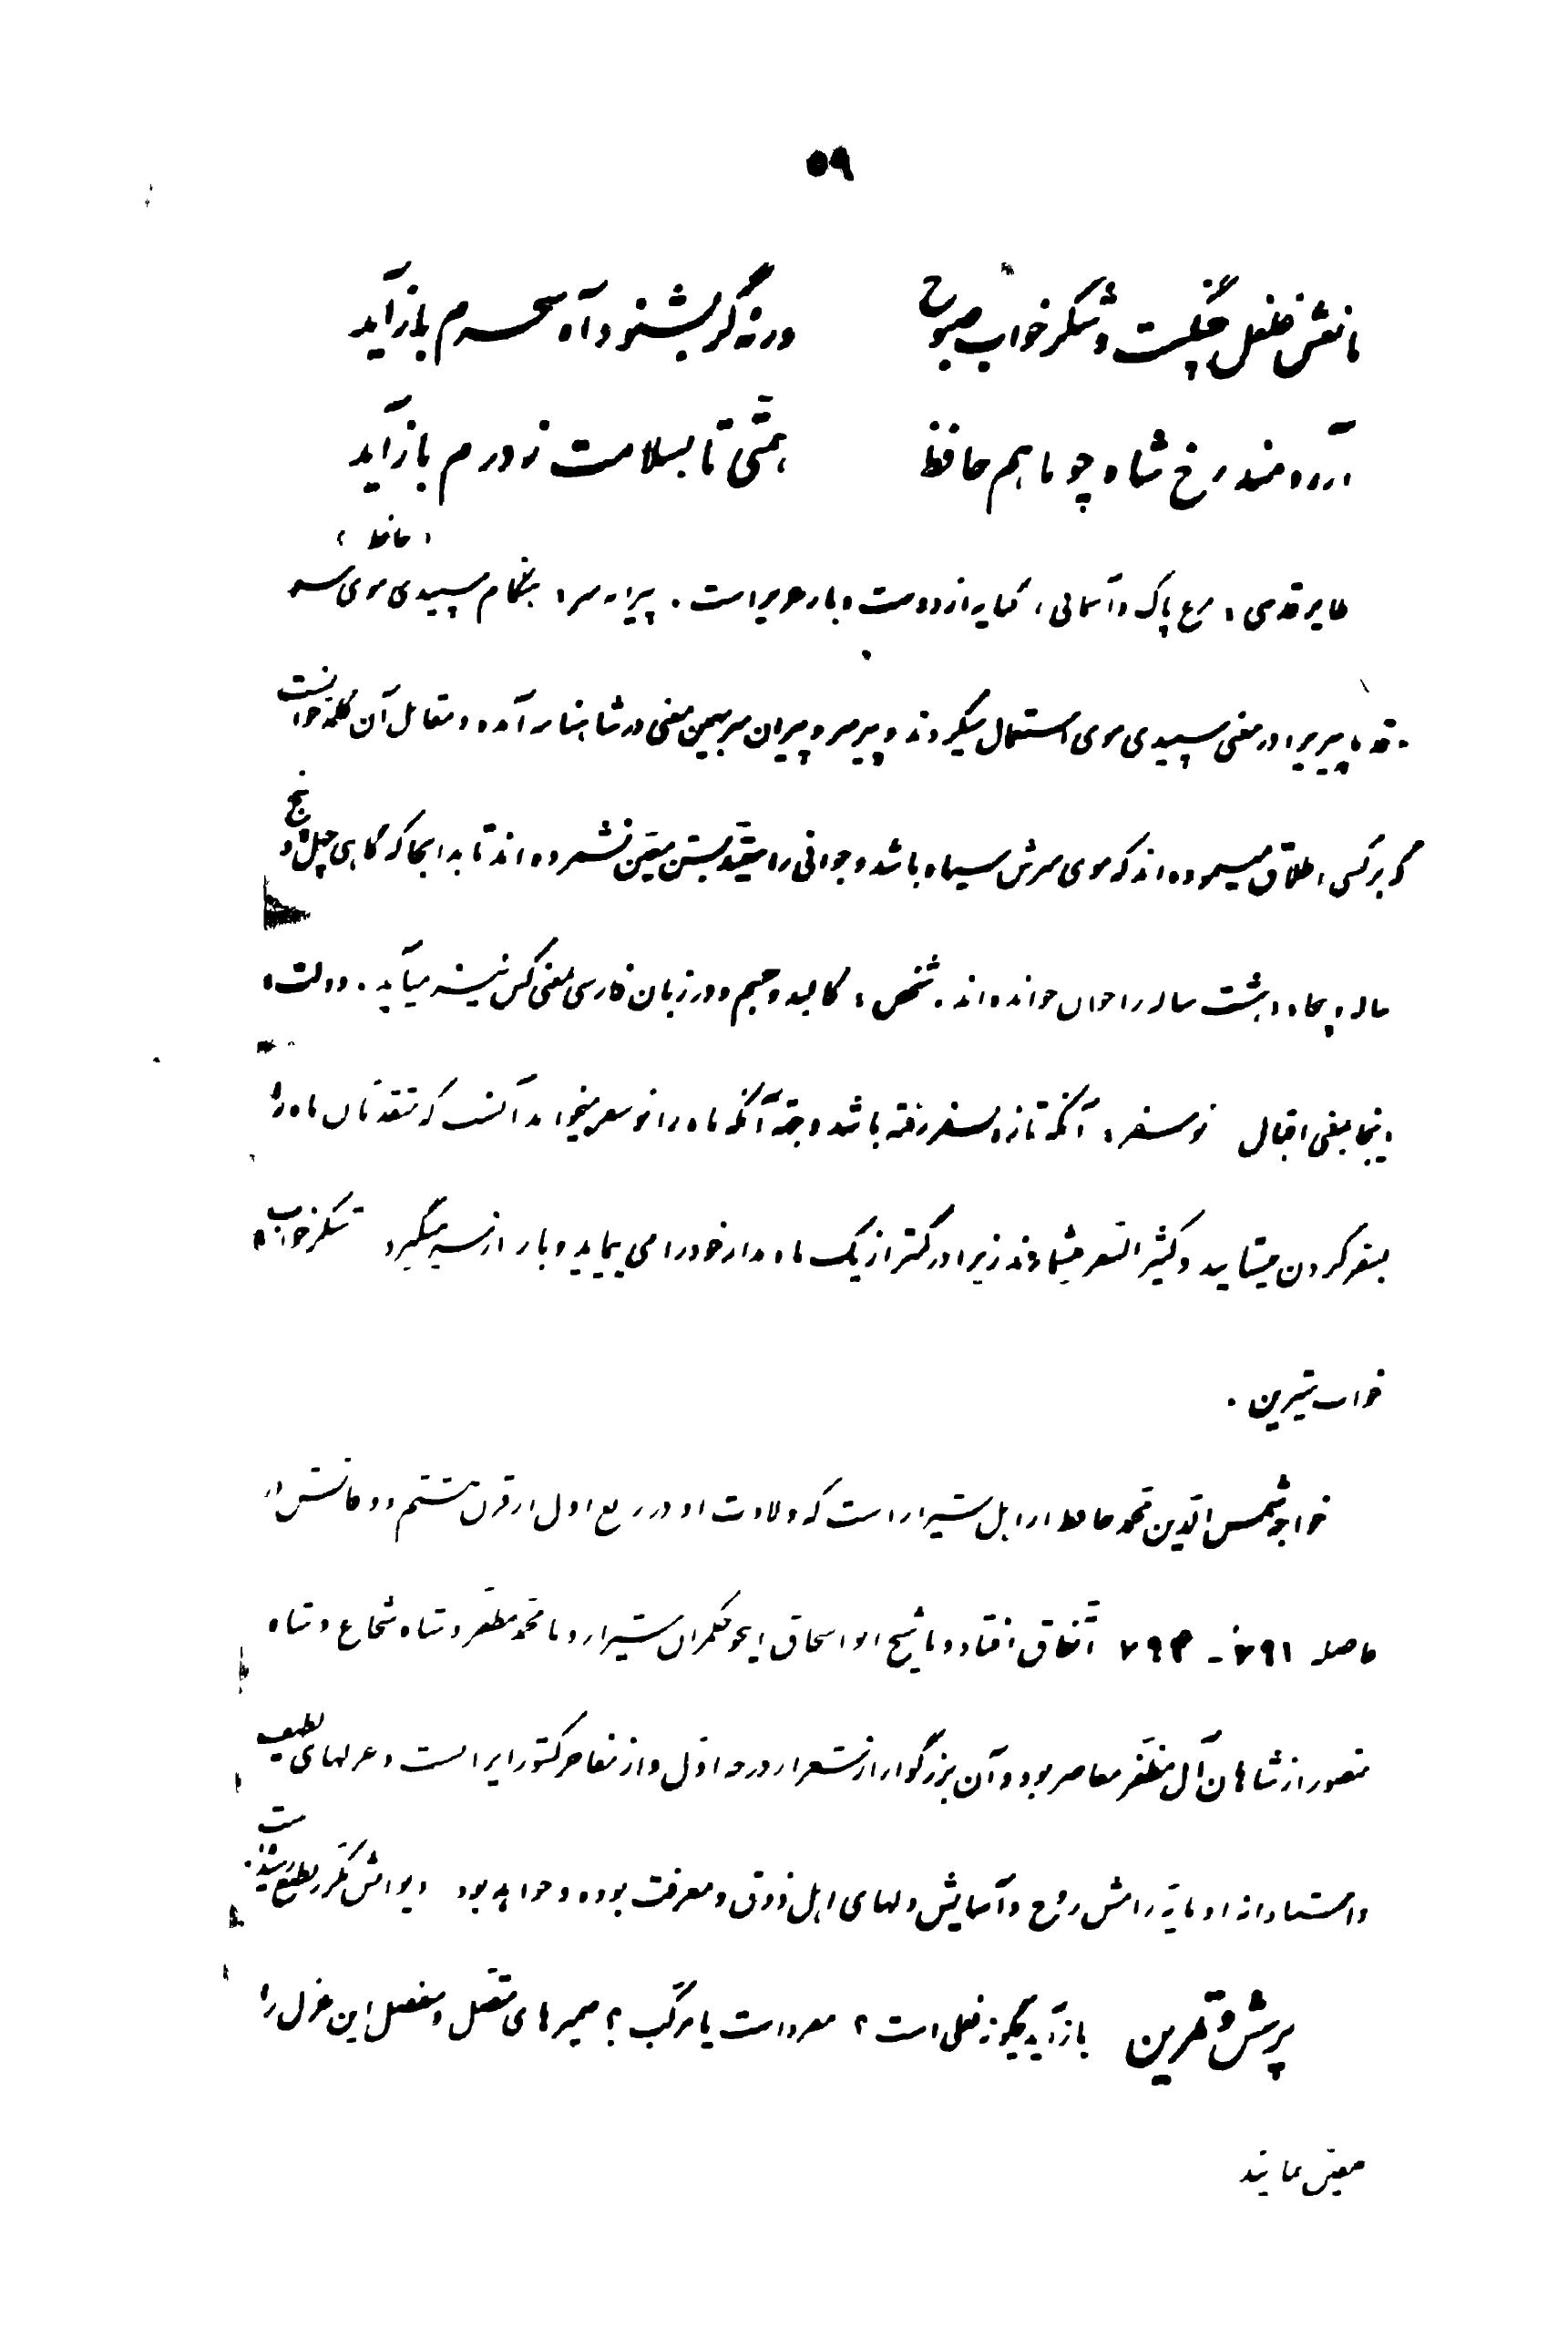 ۵۹
مانعش غلغل چنگست و شکر خواب صبوح ورنه گر بشنود آه سحرم بازآید
آرزومند رخ شاه چو ماهم حافظ همّتی تا بسلامت ز درم بازآید
(حافظ)
طایر قدسی، مرغ پاک و آسمانی، کنایه از دوست و یار عزیز است. پیرانه سر، بهنگام سپیدی موی سر
قدما پیر را در معنی سپیدی موی استعمال میکردند و پیر سر و پیران سر بهمین معنی در شاهنامه آمده و مقابل آن کلمه جوانست
که بر کسی اطلاق مینموده‌اند که موی سرش سیاه باشد و جوانی را مقیّد بسنّ معیّن نشمرده‌اند تا بدانجا که گاهی چهل و پنج
ساله و پنجاه و هشت ساله را جوان خوانده‌اند. شخص، کالبد و جسم و در زبان فارسی بمعنی کس نیز میآید. دولت،
اینجا بمعنی اقبال نوسفر، آنکه تازه بسفر رفته باشد وجه آنکه ماه را نوسفر میخواند آنست که متقدّمان ماه را
بسفر کردن میستایند و کثیر السّفر میشمارند زیرا در کمتر از یک ماه مدار خود را می‌پیماید و باز از سر میگیرد شکر خواب،
خواب شیرین.
خواجه شمس الدّین محمّد حافظ از اهل شیراز است که ولادت او در ربع اول از قرن هشتم و وفاتش در
فاصله ۷۹۱ - ۷۹۴ اتّفاق افتاده و با شیخ ابو اسحاق اینجو حکمران شیراز و با محمّد مظفّر و شاه شجاع و شاه
منصور از شاهان آل مظفّر معاصر بود و آن بزرگوار از شعرای درجه اوّل و از مفاخر کشور ایرانست و غزلهای لطیف
و استادانه او مایهٔ رامش روح و آسایش دلهای اهل ذوق و معرفت بوده و خواهد بود دیوانش مکرّر بطبع رسیده است.
پرسش و تمرین بازآید چگونه فعلی است؟ مفرد است یا مرکّب؟ ضمیرهای متّصل و منفصل این غزل را
معیّن نمائید